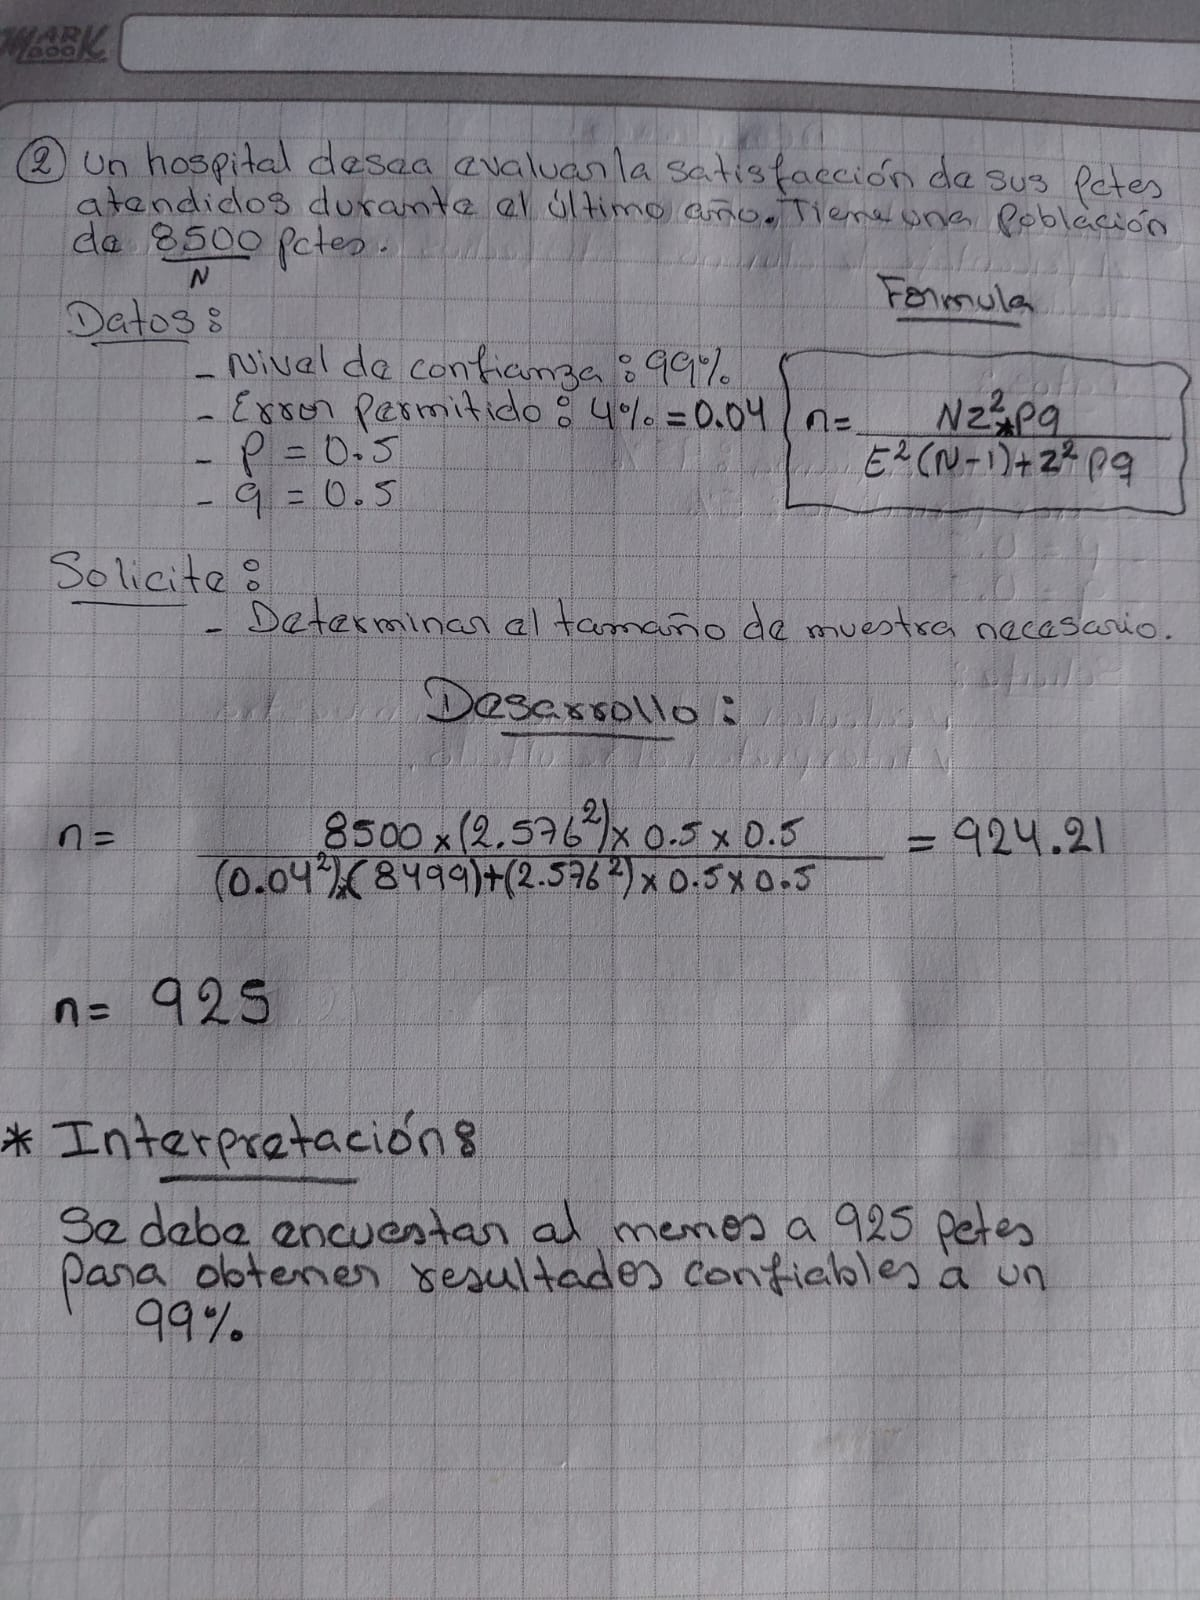 MARK BOOK
② Un hospital desea evaluar la satisfacción de sus Pctes
atendidos durante el último año. Tiene una Población
de 8500 Pctes.
N
Formula
Datos:
- Nivel de confianza: 99%
- Error Permitido: 4% = 0.04
- P = 0.5
- q = 0.5
n = NZ²*pq / E²(N-1)+Z² pq
Solicita:
- Determinar el tamaño de muestra necesario.
Desarrollo:
n = 8500 x (2.576²) x 0.5 x 0.5 / (0.04²)x(8499)+(2.576²) x 0.5 x 0.5 = 924.21
n = 925
* Interpretación:
Se debe encuestar al menos a 925 pctes
para obtener resultados confiables a un
99%